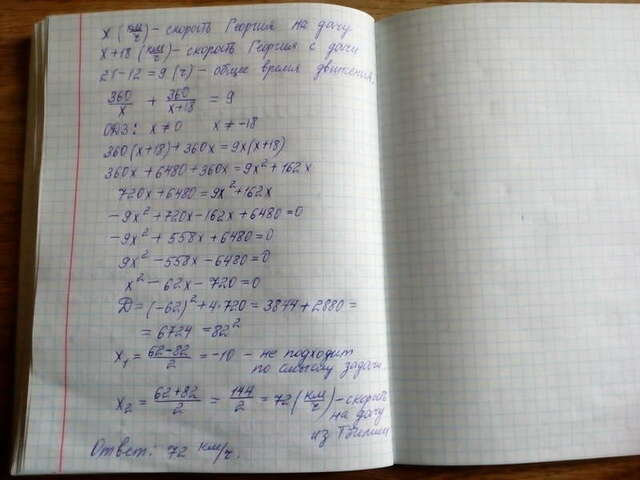 x (км/ч) – скорость Георгия на дачу
x+18 (км/ч) – скорость Георгия с дачи
21-12=9 (ч) – общее время движения.
360/x + 360/(x+18) = 9
ОДЗ: x≠0 x≠-18
360(x+18)+360x=9x(x+18)
360x+6480+360x=9x²+162x
720x+6480=9x²+162x
-9x²+720x-162x+6480=0
-9x²+558x+6480=0
9x²-558x-6480=0
x²-62x-720=0
D=(-62)²+4·720=3844+2880=
=6724=82²
x₁=(62-82)/2=-10 – не подходит
по смыслу задачи
x₂=(62+82)/2=144/2=72(км/ч)–скорость
на дачу
из Тбилиси
Ответ: 72 км/ч.